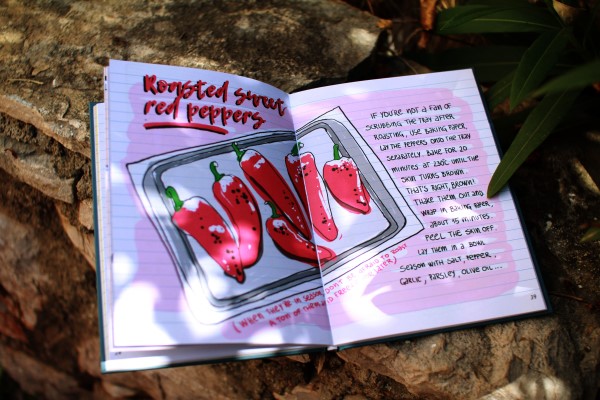 Roasted sweet
red peppers
(WHEN THEY'RE IN SEASON, DON'T BE AFRAID TO ROAST
A TON OF THEM AND FREEZE FOR WINTER)
IF YOU'RE NOT A FAN OF
SCRUBBING THE TRAY AFTER
ROASTING, USE BAKING PAPER.
LAY THE PEPPERS ONTO THE TRAY
SEPARATELY. BAKE FOR 20
MINUTES AT 230C UNTIL THE
SKIN TURNS BROWN.
THAT'S RIGHT, BROWN!
TAKE THEM OUT AND
WRAP IN BAKING PAPER,
ABOUT 15 MINUTES.
PEEL THE SKIN OFF.
LAY THEM IN A BOWL
SEASON WITH SALT, PEPPER,
GARLIC, PARSLEY, OLIVE OIL...